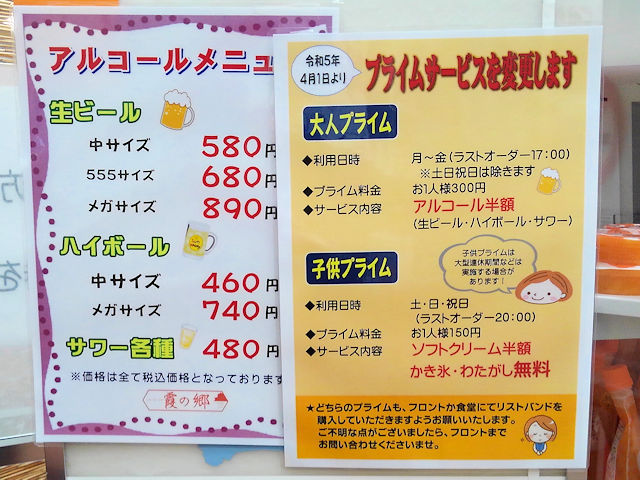 アルコールメニュ
生ビール
中サイズ 580円
555サイズ 680円
メガサイズ 890円
ハイボール
中サイズ 460円
メガサイズ 740円
サワー各種 480円
※価格は全て税込価格となっております
霞の郷
令和5年
4月1日より
プライムサービスを変更します
大人プライム
◆利用日時 月～金(ラストオーダー17:00)
※土日祝日は除きます
◆プライム料金 お1人様300円
◆サービス内容 アルコール半額
(生ビール・ハイボール・サワー)
子供プライムは
大型連休期間などは
実施する場合が
あります!
子供プライム
◆利用日時 土・日・祝日
(ラストオーダー20:00)
◆プライム料金 お1人様150円
◆サービス内容 ソフトクリーム半額
かき氷・わたがし無料
★どちらのプライムも、フロントか食堂にてリストバンドを
購入していただきますようお願いいたします。
ご不明な点がございましたら、フロントまで
お問い合わせくださいませ。
方
を